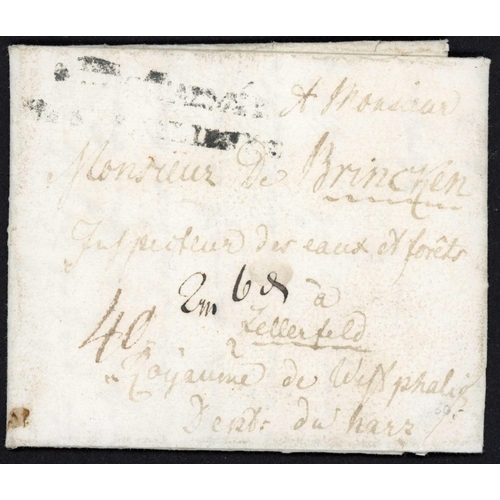 A Monsieur
Monsieur De Brincken
Inspecteur des eaux et forêts
à
2m 6
Zellerfeld
40
Royaume de Westphalie
Dept: du harz